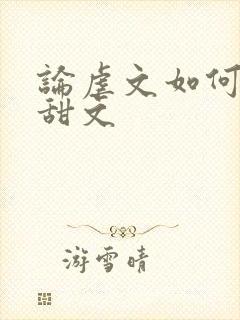 論虐文如何
甜文
游雪晴